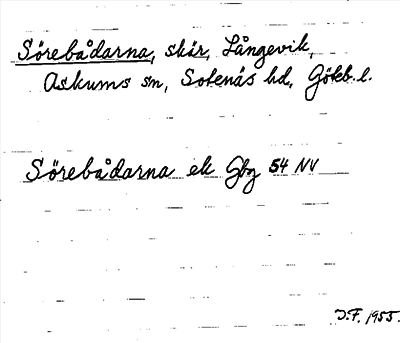 Sörebådarna, skär, Långevik,
Askums sn, Sotenäs hd, Göteb. l.
Sörebådarna ek Gbg 54 NV
J.F. 1955.